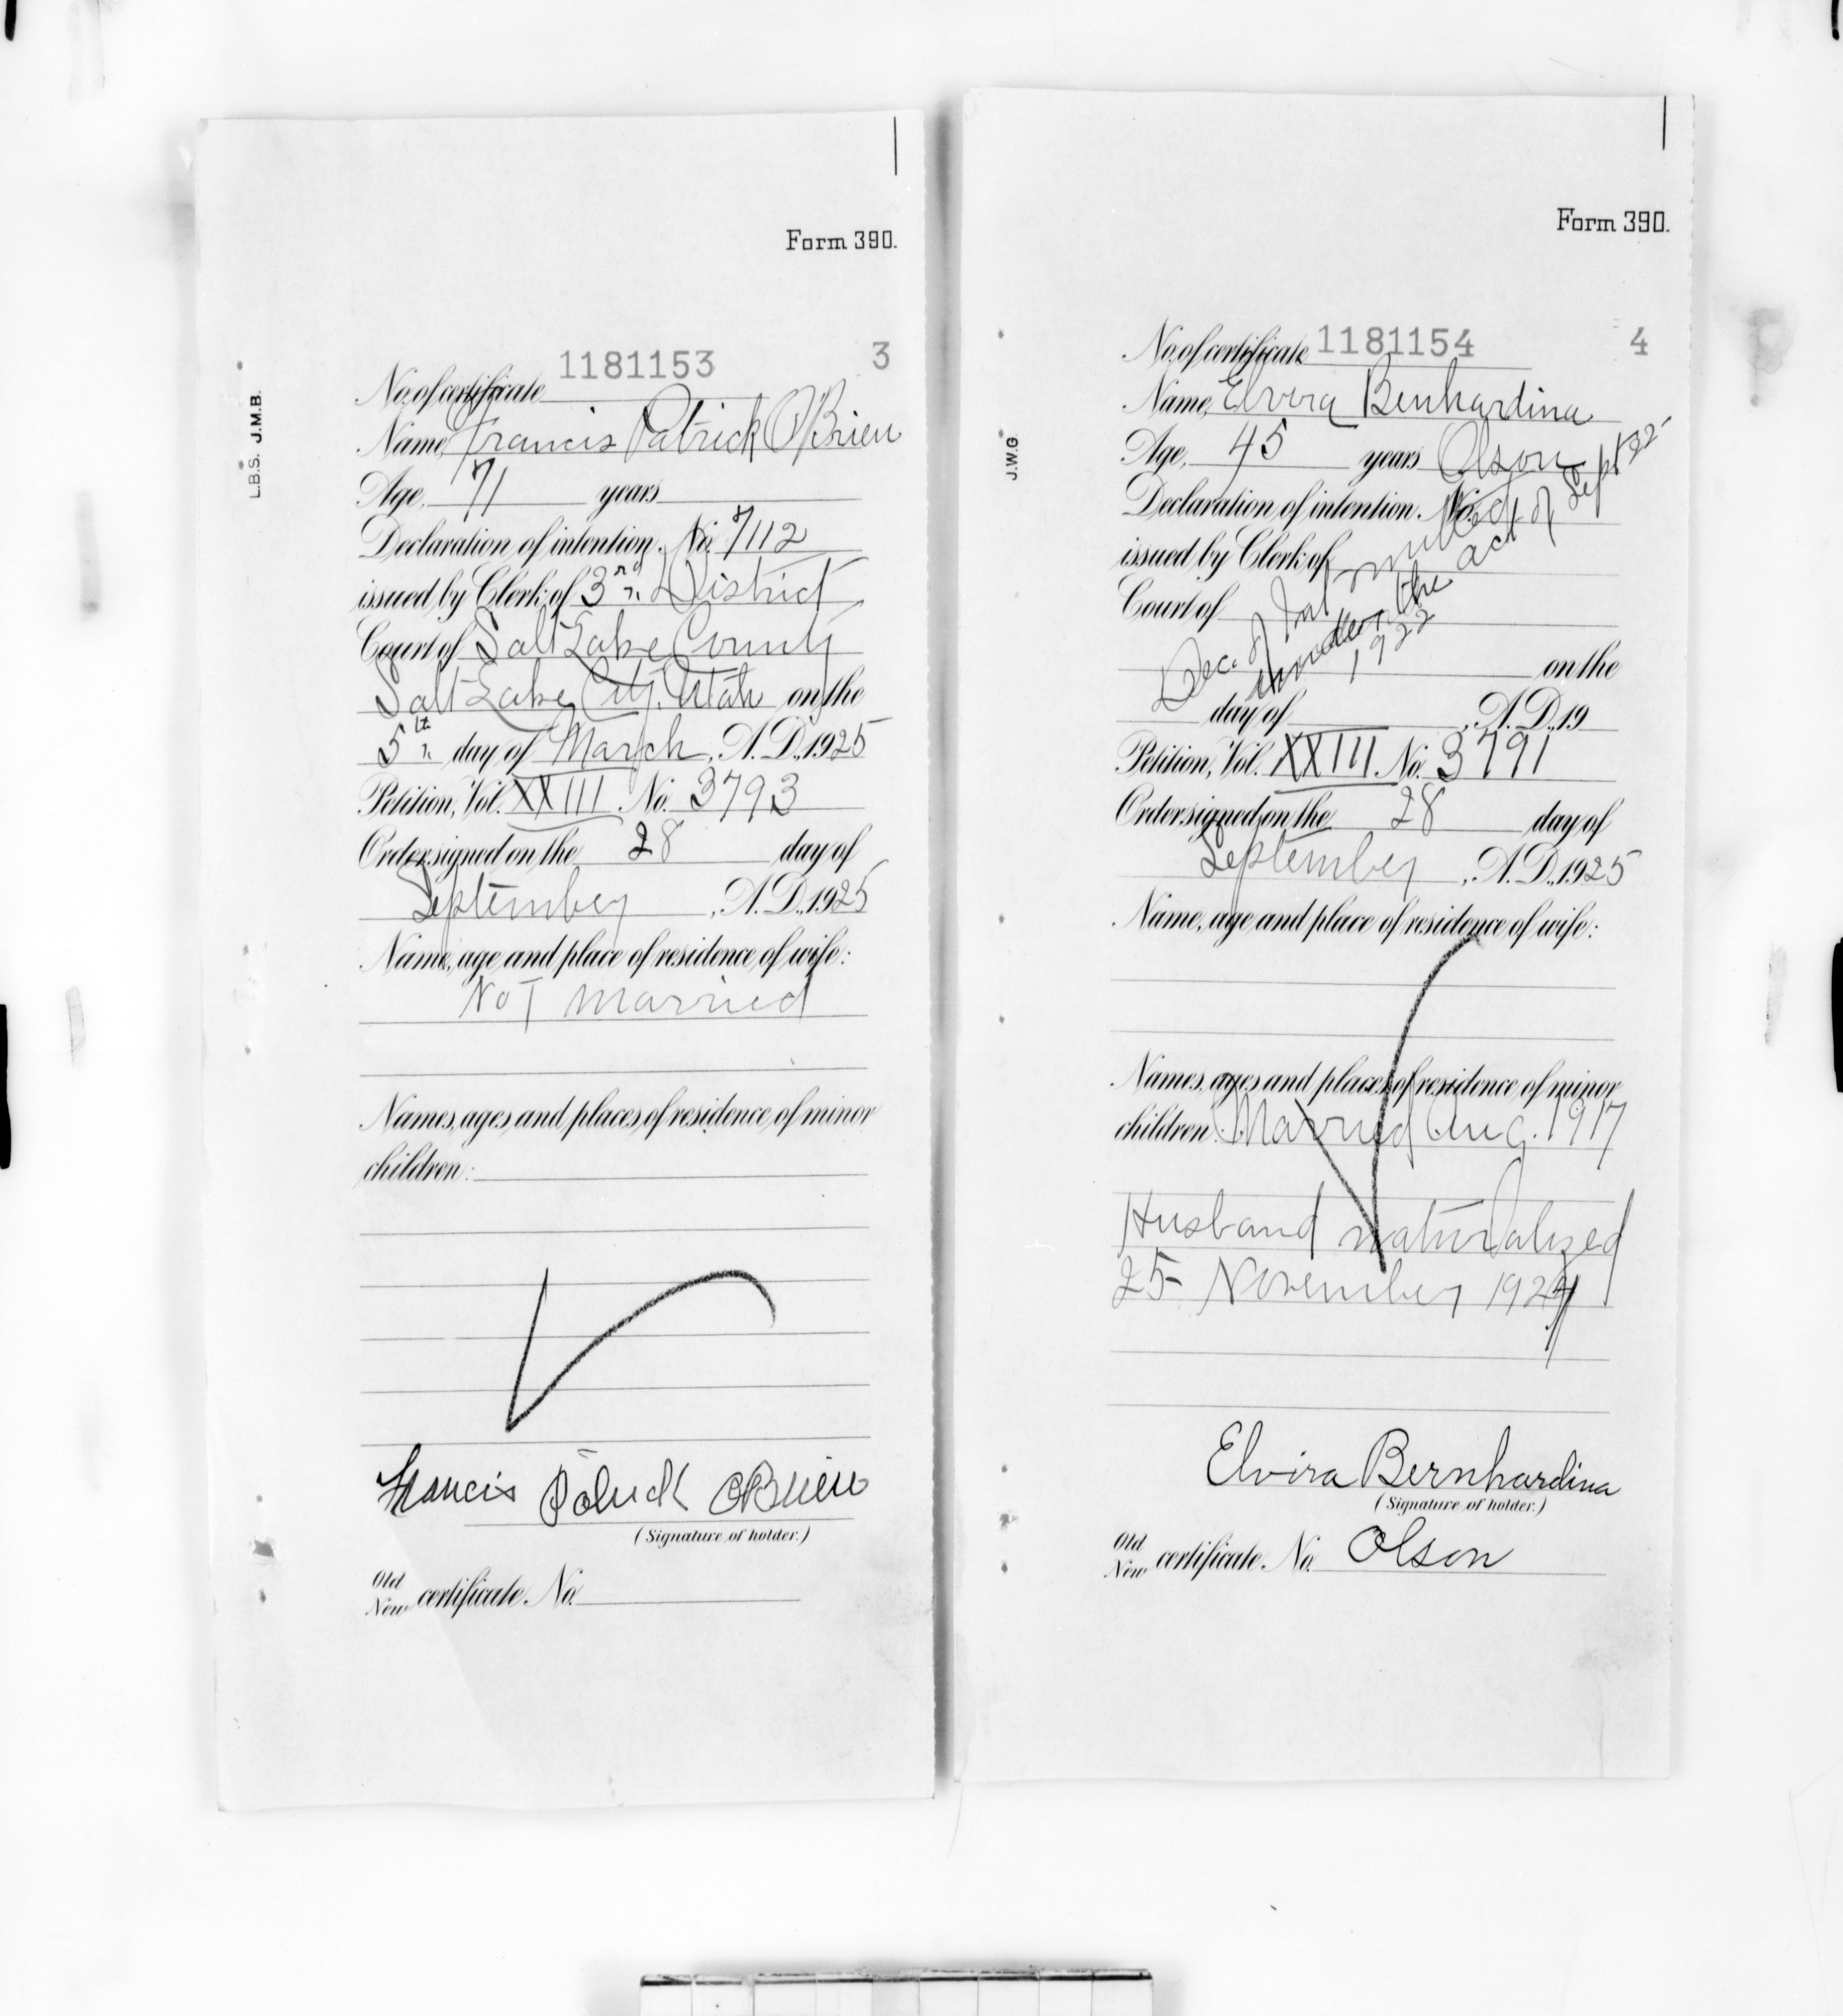 Form 390.
L.B.S. J.M.B.
No. of certificate 1181153 3
Name, Francis Patrick O'Brien
Age, 71 years
Declaration of intention. No. 7112
issued by Clerk of 3rd District
Court of Salt Lake County
Salt Lake City, Utah on the
5th day of March, A. D., 1925
Petition, Vol. XXIII No. 3793
Order signed on the 28 day of
September, A. D., 1925
Name, age and place of residence of wife:
NoT Married
Names, ages and places of residence of minor
children:
Francis Patrick O'Brien
(Signature of holder.)
Old
New certificate. No.
Form 390.
J.W.G
No. of certificate 1181154 4
Name, Elvira Benhardina
Age, 45 years Olson
Declaration of intention. No.
issued by Clerk of
Court of
Dec. of Int omitted
under the act of Sept 22-
1922
on the
day of , A. D., 19
Petition, Vol. XXIII No. 3791
Order signed on the 28 day of
September, A. D., 1925
Name, age and place of residence of wife:
Names, ages and places of residence of minor
children: Married Aug. 1917
Husband naturalized
25- November 1924
Elvira Bernhardina
(Signature of holder.)
Old
New certificate. No. Olson